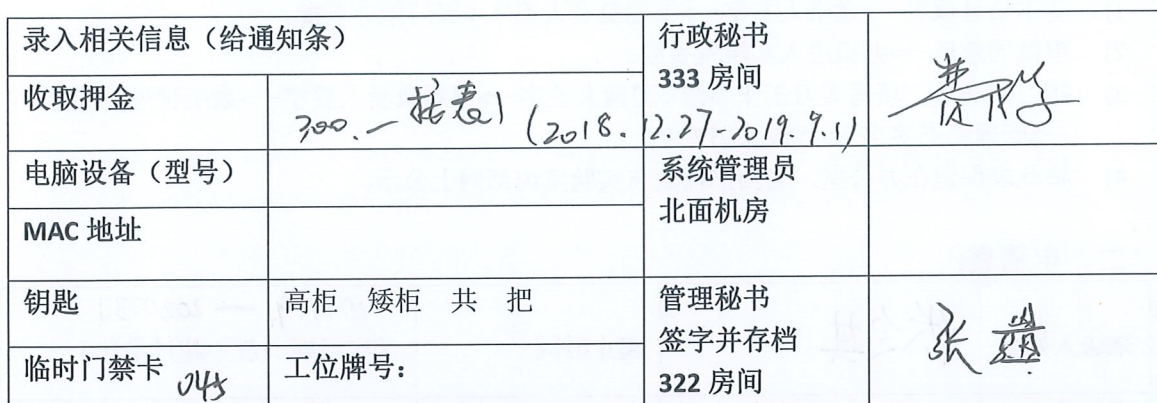 录入相关信息（给通知条）
行政秘书
333 房间
收取押金
300.一
(2018.12.27-2019.9.1)
电脑设备（型号）
系统管理员
北面机房
MAC 地址
钥匙
高柜 矮柜 共 把
管理秘书
签字并存档
322 房间
张
临时门禁卡 045
工位牌号：